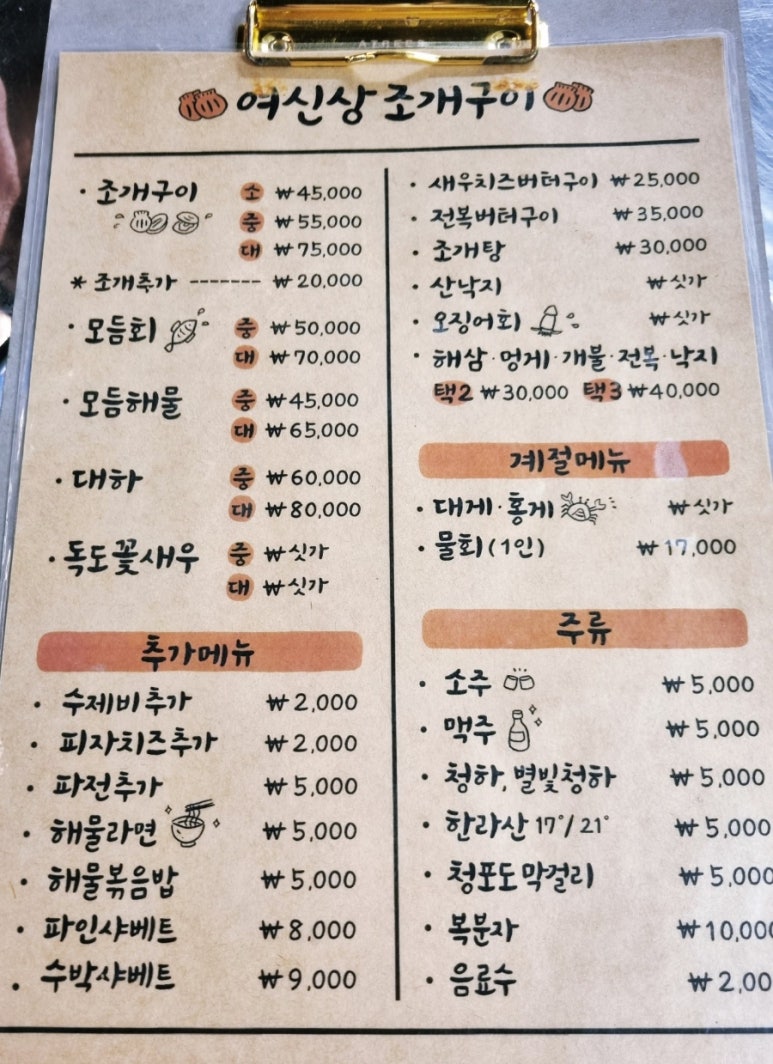 여신상 조개구이
· 조개구이 소 ₩45,000
중 ₩55,000
대 ₩75,000
* 조개추가 ------- ₩20,000
· 모듬회 중 ₩50,000
대 ₩70,000
· 모듬해물 중 ₩45,000
대 ₩65,000
· 대하 중 ₩60,000
대 ₩80,000
· 독도꽃새우 중 ₩싯가
대 ₩싯가
추가메뉴
· 수제비추가 ₩2,000
· 피자치즈추가 ₩2,000
· 파전추가 ₩5,000
· 해물라면 ₩5,000
· 해물볶음밥 ₩5,000
· 파인샤베트 ₩8,000
· 수박샤베트 ₩9,000
· 새우치즈버터구이 ₩25,000
· 전복버터구이 ₩35,000
· 조개탕 ₩30,000
· 산낙지 ₩싯가
· 오징어회 ₩싯가
· 해삼·멍게·개불·전복·낙지
택2 ₩30,000 택3 ₩40,000
계절메뉴
· 대게·홍게 ₩싯가
· 물회(1인) ₩17,000
주류
· 소주 ₩5,000
· 맥주 ₩5,000
· 청하, 별빛청하 ₩5,000
· 한라산 17°/21° ₩5,000
· 청포도막걸리 ₩5,000
· 복분자 ₩10,000
· 음료수 ₩2,00